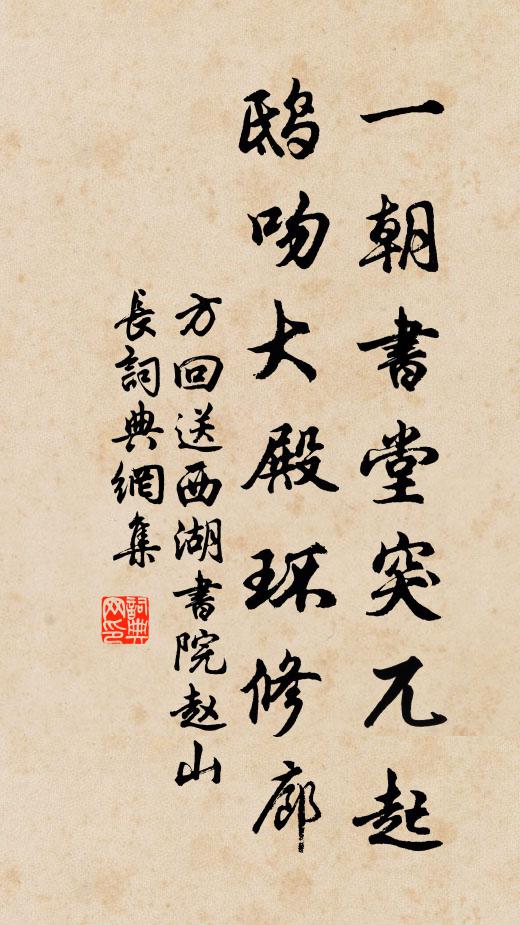 一朝書堂突兀起
鴟吻大殿环修廊
方回送西湖書院赵山
長詞典網集
詞典网印